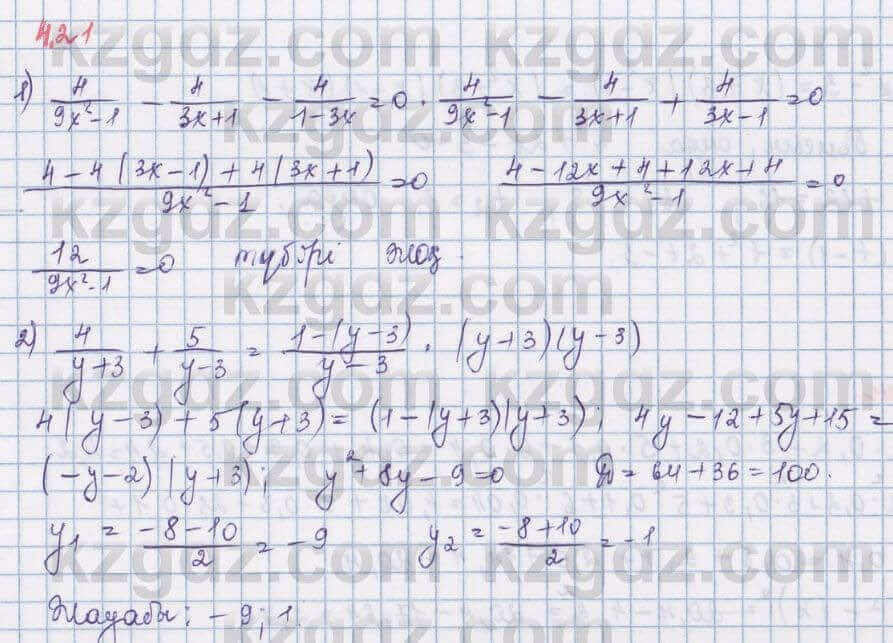 4.21
1) 4/(9x²-1) - 4/(3x+1) - 4/(1-3x) = 0. 4/(9x²-1) - 4/(3x+1) + 4/(3x-1) = 0
(4-4(3x-1)+4(3x+1))/(9x²-1) = 0 (4-12x+4+12x+4)/(9x²-1) = 0
12/(9x²-1) = 0 түбірі жоқ.
2) 4/(y+3) + 5/(y-3) = (1-(y-3))/(y-3) · (y+3)(y-3)
4(y-3)+5(y+3) = (1-(y+3)(y+3); 4y-12+5y+15 =
(-y-2)(y+3); y²+8y-9=0 D=64+36=100.
y₁ = (-8-10)/2 = -9 y₂ = (-8+10)/2 = -1
Жауабы: -9; 1.
kzgdz.com